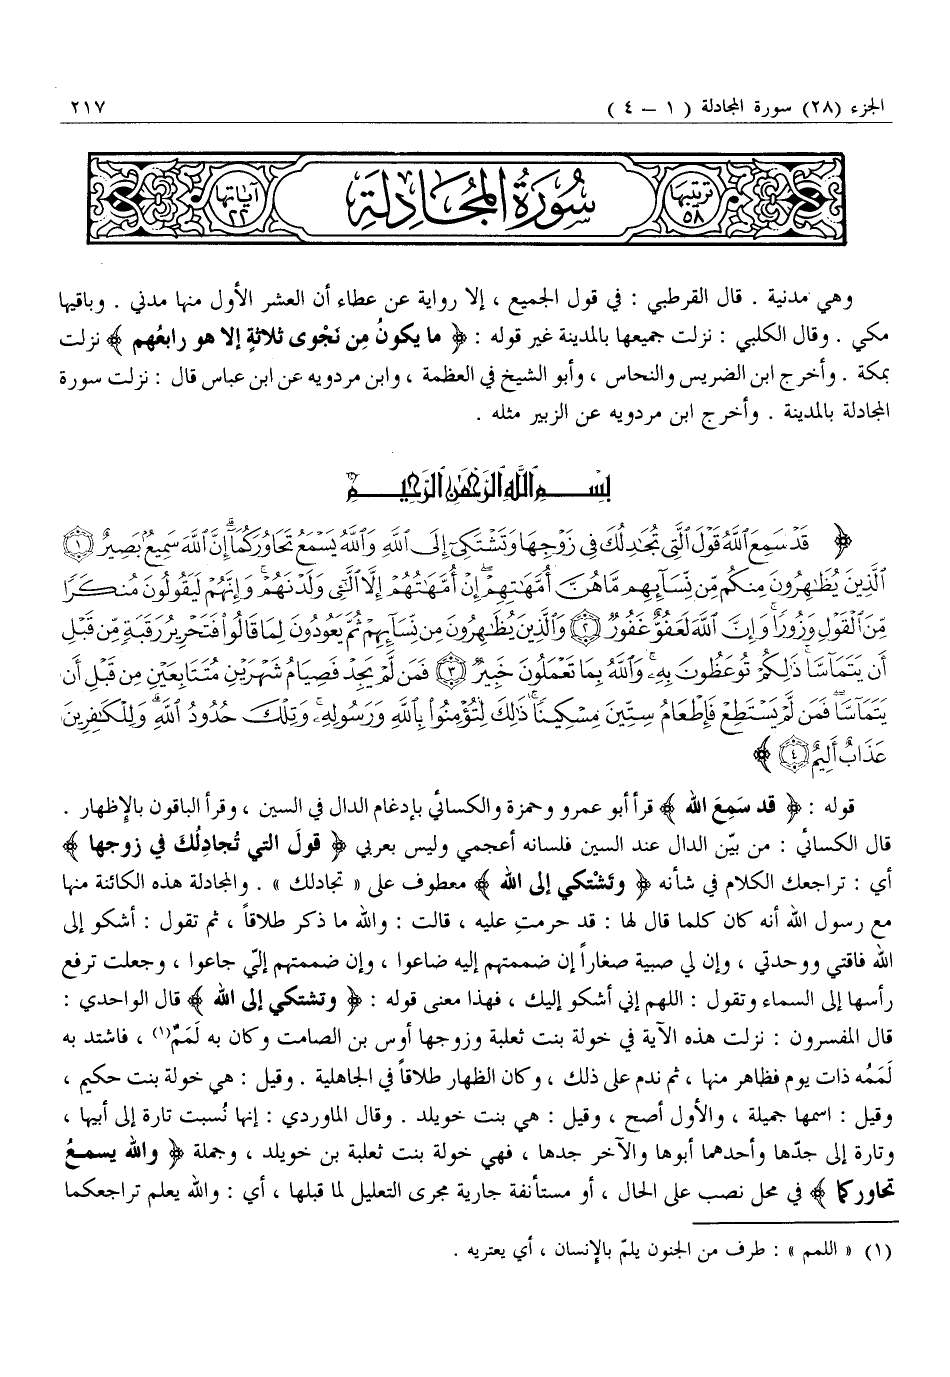 الجزء (٢٨) سورة المجادلة ( ١ – ٤ ) ٢١٧
ترتيبها ٥٨ سُورَةُ المُجَادِلَةِ آياتها ٢٢
وهي مدنية . قال القرطبي : في قول الجميع ، إلا رواية عن عطاء أن العشر الأول منها مدني . وباقيها
مكي . وقال الكلبي : نزلت جميعها بالمدينة غير قوله : ﴿ ما يكونُ مِن نَجْوى ثلاثةٍ إلا هو رابعُهم ﴾ نزلت
بمكة . وأخرج ابن الضريس والنحاس ، وأبو الشيخ في العظمة ، وابن مردويه عن ابن عباس قال : نزلت سورة
المجادلة بالمدينة . وأخرج ابن مردويه عن الزبير مثله .
بِسْمِ اللَّهِ الرَّحْمَنِ الرَّحِيمِ
﴿ قَدْ سَمِعَ ٱللَّهُ قَوْلَ ٱلَّتِى تُجَٰدِلُكَ فِى زَوْجِهَا وَتَشْتَكِىٓ إِلَى ٱللَّهِ وَٱللَّهُ يَسْمَعُ تَحَاوُرَكُمَآ إِنَّ ٱللَّهَ سَمِيعٌۢ بَصِيرٌ ١
ٱلَّذِينَ يُظَٰهِرُونَ مِنكُم مِّن نِّسَآئِهِم مَّا هُنَّ أُمَّهَٰتِهِمْ إِنْ أُمَّهَٰتُهُمْ إِلَّا ٱلَّٰٓـِٔى وَلَدْنَهُمْ وَإِنَّهُمْ لَيَقُولُونَ مُنكَرًا
مِّنَ ٱلْقَوْلِ وَزُورًا وَإِنَّ ٱللَّهَ لَعَفُوٌّ غَفُورٌ ٢ وَٱلَّذِينَ يُظَٰهِرُونَ مِن نِّسَآئِهِمْ ثُمَّ يَعُودُونَ لِمَا قَالُوا۟ فَتَحْرِيرُ رَقَبَةٍ مِّن قَبْلِ
أَن يَتَمَآسَّا ذَٰلِكُمْ تُوعَظُونَ بِهِۦ وَٱللَّهُ بِمَا تَعْمَلُونَ خَبِيرٌ ٣ فَمَن لَّمْ يَجِدْ فَصِيَامُ شَهْرَيْنِ مُتَتَابِعَيْنِ مِن قَبْلِ أَن
يَتَمَآسَّا فَمَن لَّمْ يَسْتَطِعْ فَإِطْعَامُ سِتِّينَ مِسْكِينًا ذَٰلِكَ لِتُؤْمِنُوا۟ بِٱللَّهِ وَرَسُولِهِۦ وَتِلْكَ حُدُودُ ٱللَّهِ وَلِلْكَٰفِرِينَ
عَذَابٌ أَلِيمٌ ٤ ﴾
قوله : ﴿ قد سَمِعَ الله ﴾ قرأ أبو عمرو وحمزة والكسائي بإدغام الدال في السين ، وقرأ الباقون بالإظهار .
قال الكسائي : من بيّن الدال عند السين فلسانه أعجمي وليس بعربي ﴿ قولَ التي تُجادِلُكَ في زوجها ﴾
أي : تراجعك الكلام في شأنه ﴿ وتَشْتكي إلى الله ﴾ معطوف على « تجادلك » . والمجادلة هذه الكائنة منها
مع رسول الله أنه كان كلما قال لها : قد حرمتِ عليه ، قالت : والله ما ذكر طلاقاً ، ثم تقول : أشكو إلى
الله فاقتي ووحدتي ، وإن لي صبية صغاراً إن ضممتهم إليه ضاعوا ، وإن ضممتهم إليّ جاعوا ، وجعلت ترفع
رأسها إلى السماء وتقول : اللهم إني أشكو إليك ، فهذا معنى قوله : ﴿ وتشتكي إلى الله ﴾ قال الواحدي :
قال المفسرون : نزلت هذه الآية في خولة بنت ثعلبة وزوجها أوس بن الصامت وكان به لَمَمٌ(١) ، فاشتد به
لَمَمُه ذات يوم فظاهر منها ، ثم ندم على ذلك ، وكان الظهار طلاقاً في الجاهلية . وقيل : هي خولة بنت حكيم ،
وقيل : اسمها جميلة ، والأول أصح ، وقيل : هي بنت خويلد . وقال الماوردي : إنها نُسبت تارة إلى أبيها ،
وتارة إلى جدّها وأحدهما أبوها والآخر جدها ، فهي خولة بنت ثعلبة بن خويلد ، وجملة ﴿ والله يسمعُ
تحاوركما ﴾ في محل نصب على الحال ، أو مستأنفة جارية مجرى التعليل لما قبلها ، أي : والله يعلم تراجعكما
(١) « اللمم » : طرف من الجنون يلمّ بالإنسان ، أي يعتريه .